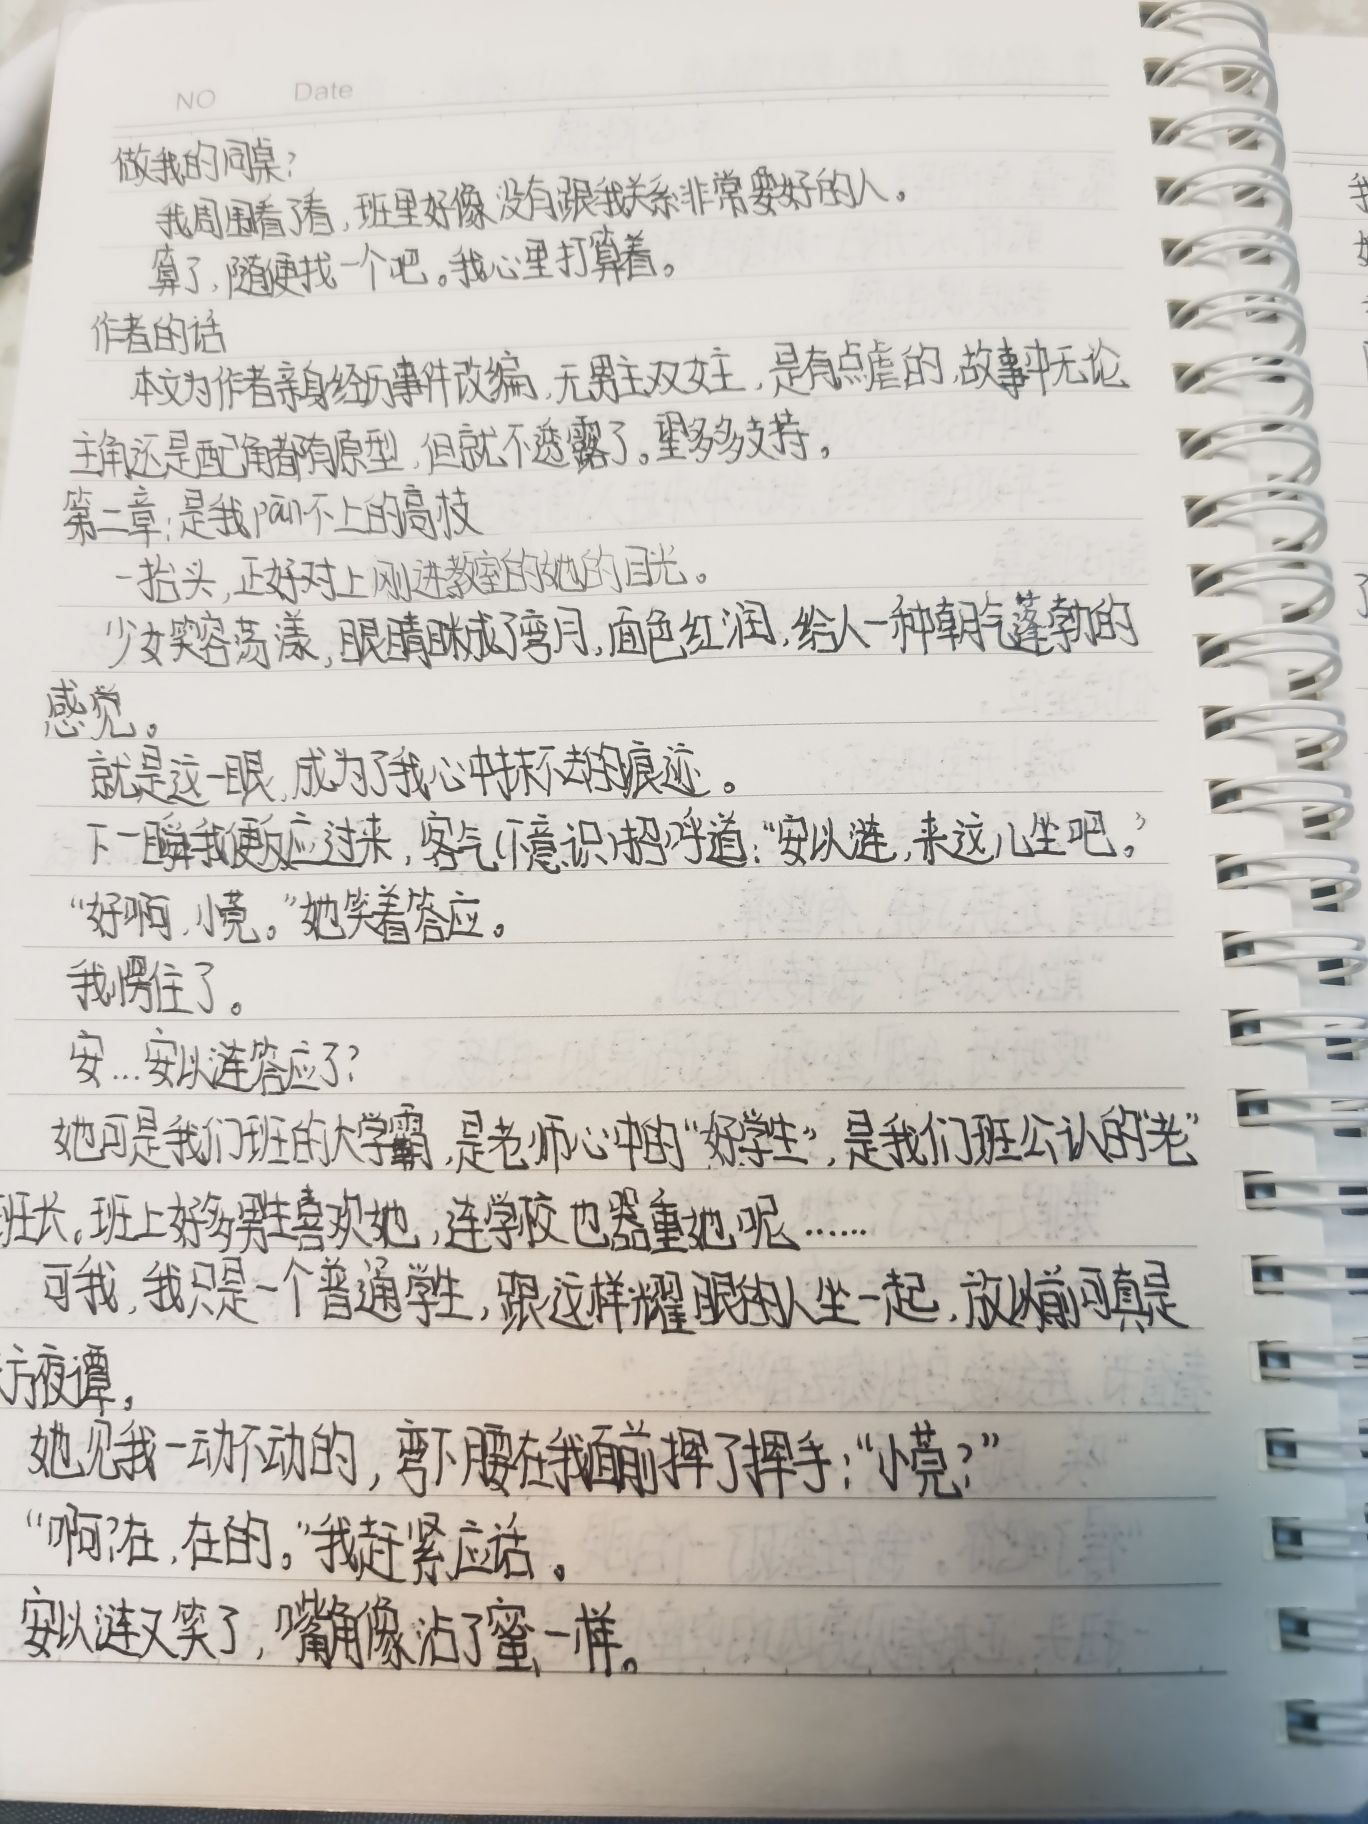 NO Date
做我的同桌?
我周围看了看,班里好像没有跟我关系非常要好的人。
算了,随便找一个吧。我心里打算着。
作者的话
本文为作者亲身经历事件改编,无男主双女主,是有点虐的,故事中无论
主角还是配角都有原型,但就不透露了。望多多支持。
第二章:是我pān不上的高枝
一抬头,正好对上刚进教室的她的目光。
少女笑容荡漾,眼睛眯成了弯月,面色红润,给人一种朝气蓬勃的
感觉。
就是这一眼,成为了我心中抹不去的痕迹。
下一瞬我便反应过来,客气(下意识)招呼道:“安以涟,来这儿坐吧。”
“好啊,小莞。”她笑着答应。
我愣住了。
安...安以涟答应了?
她可是我们班的大学霸,是老师心中的“好学生”,是我们班公认的“老”
班长。班上好多男生喜欢她,连学校也器重她呢……
可我,我只是一个普通学生,跟这样耀眼的人坐一起,放以前可真是
方夜谭。
她见我一动不动的,弯下腰在我面前挥了挥手:“小莞?”
“啊?在,在的。”我赶紧应话。
安以涟又笑了,嘴角像沾了蜜一样。